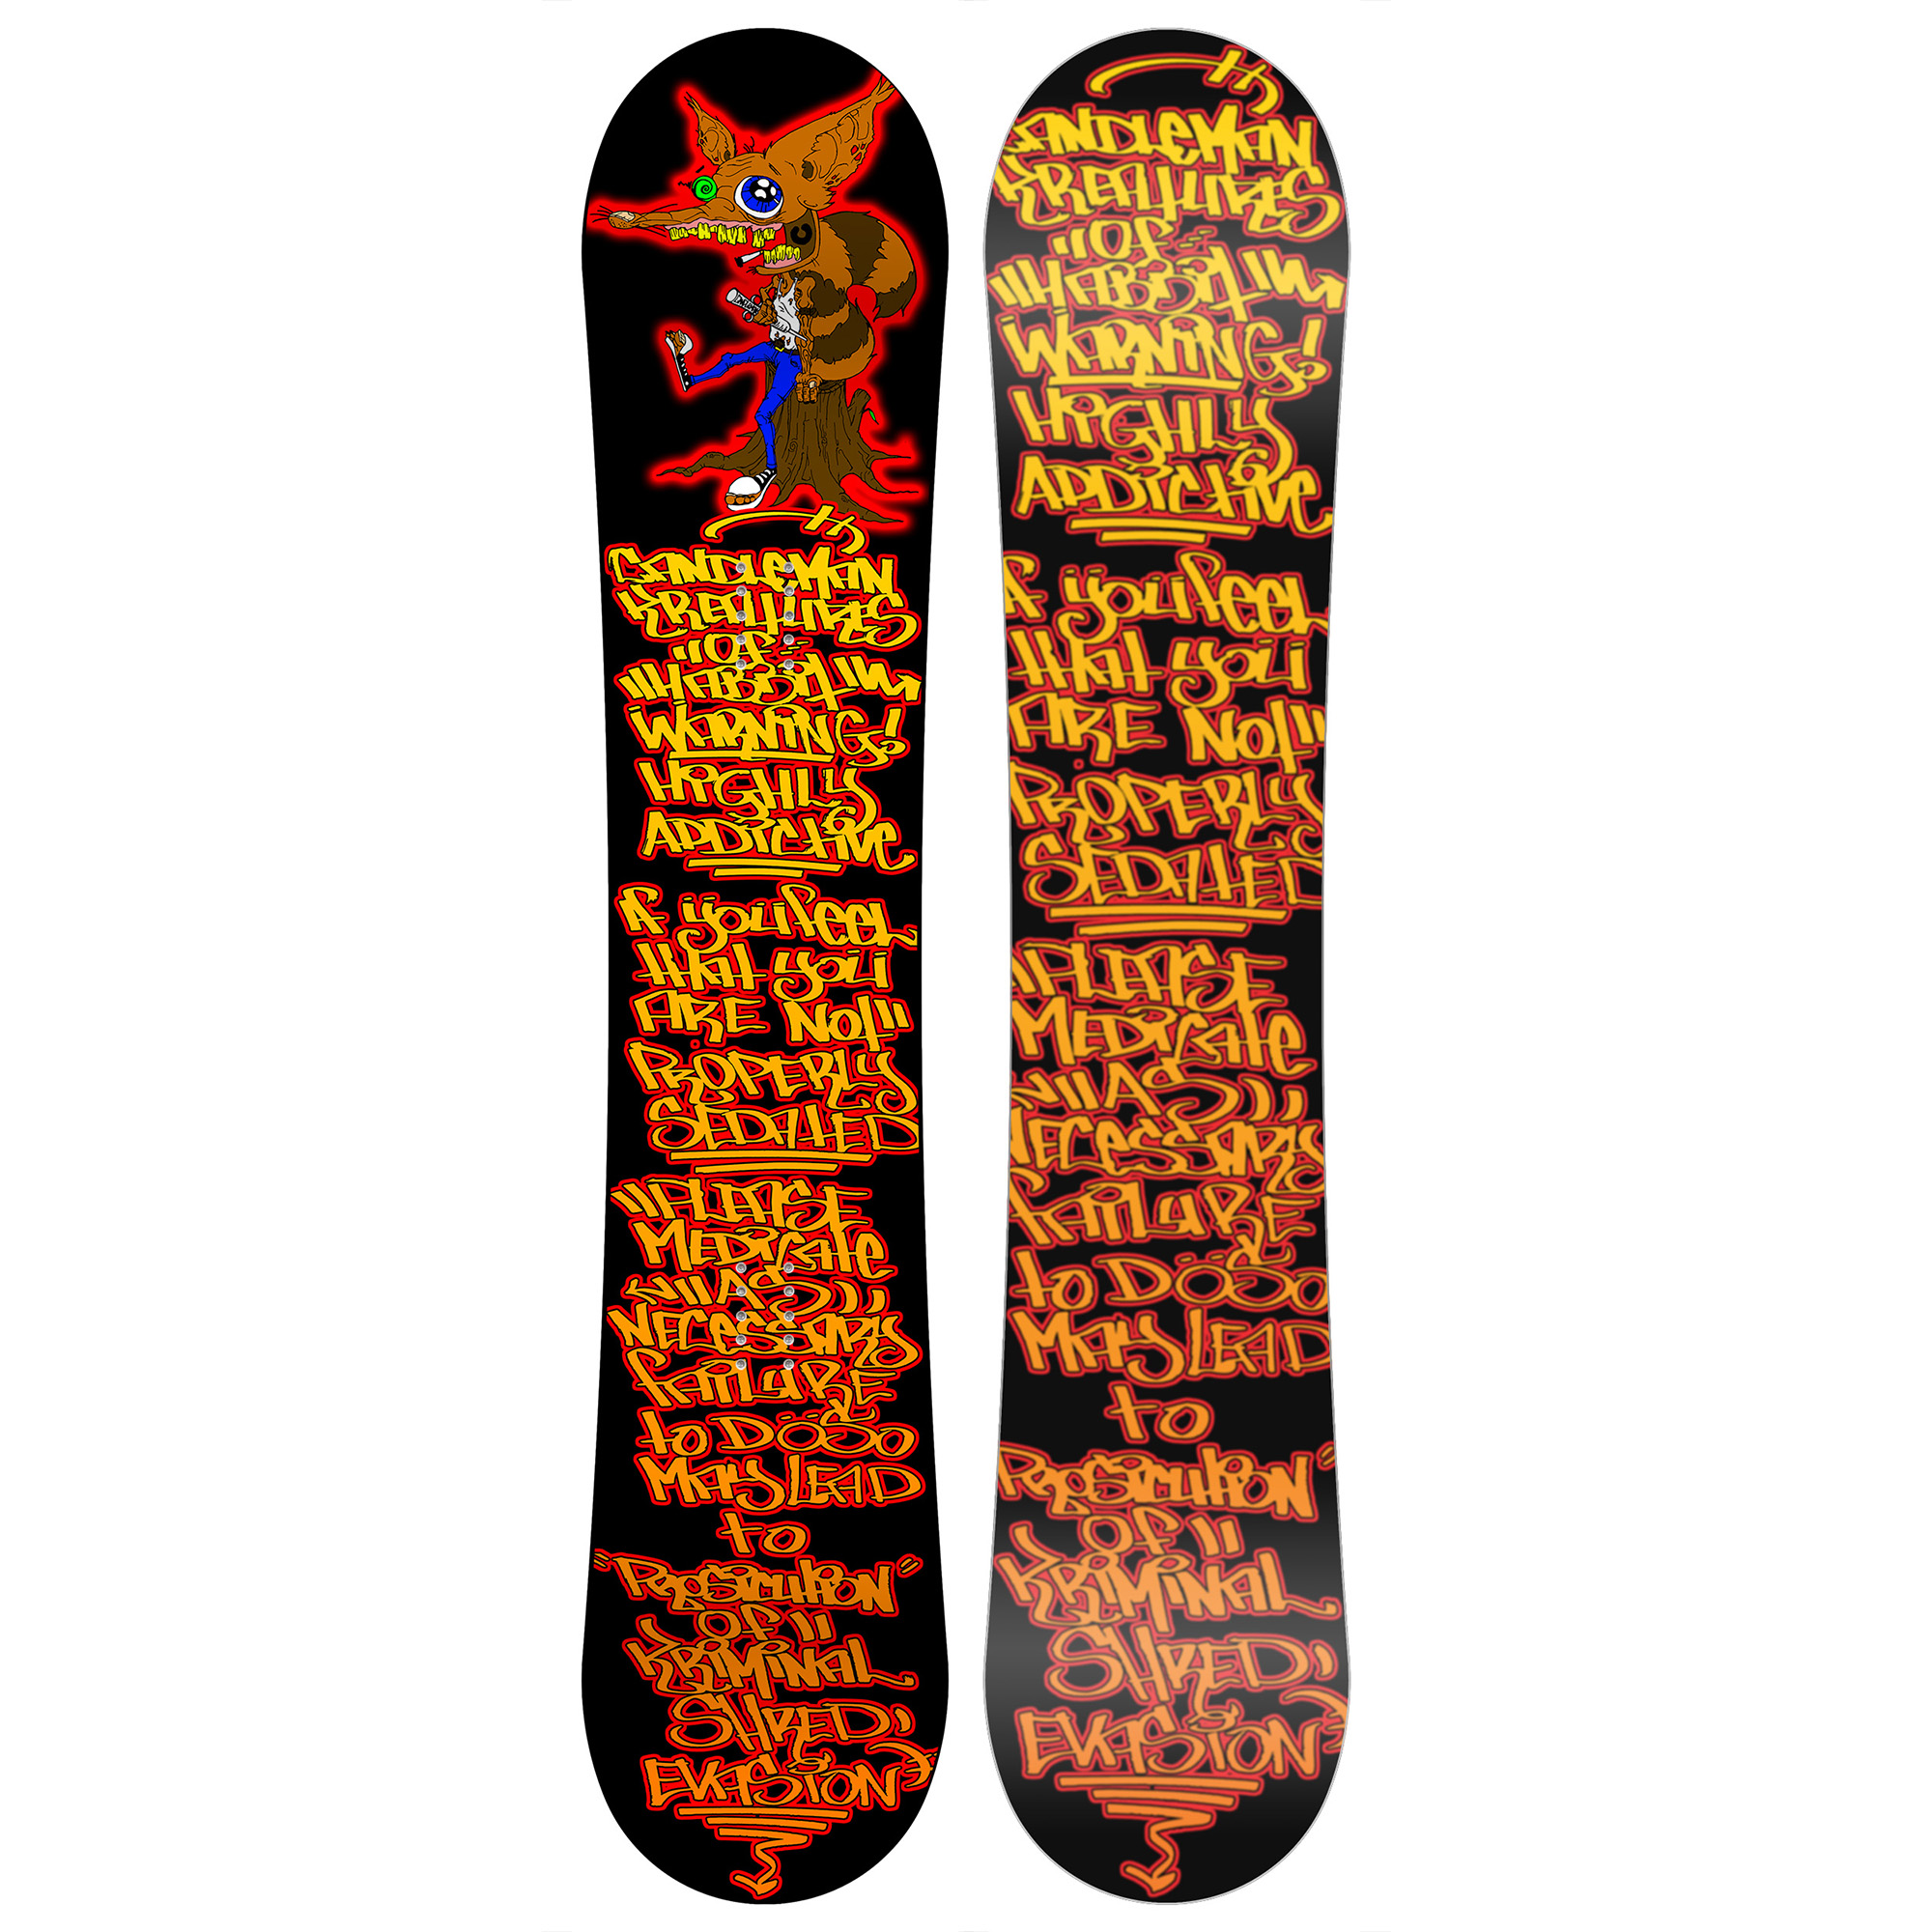 CANDLEMAN
KREATURES
"OF
"HABBIT"
WARNING!
HiGHLY
ADDICTIVE
if you feel
that you
ARE NOT"
PROPERLY
SEDATED
"PLEASE
MEDICATE
"AS"
NECESSARY
FAILURE
to DO SO
MAY LEAD
to
"PROSICUTION"
OF"
KRiMiNAL
SHRED
EVASiON
CANDLEMAN
KREATURES
"OF
"HABBIT"
WARNING!
HiGHLY
ADDICTIVE
if you feel
that you
ARE NOT"
PROPERLY
SEDATED
"PLEASE
MEDICATE
"AS"
NECESSARY
FAILURE
to DO SO
MAY LEAD
to
PROSICUTION"
OF"
KRiMiNAL
SHRED
EVASiON